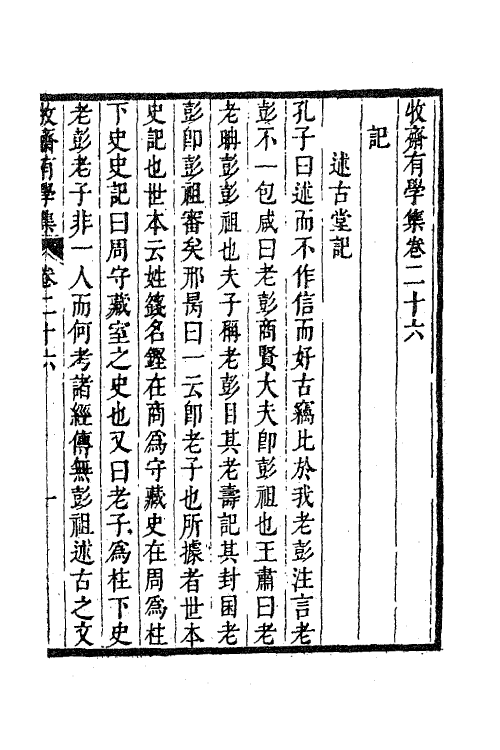 牧齋有學集卷二十六
記
述古堂記
孔子曰述而不作信而好古竊比於我老彭注言老
彭不一包咸曰老彭商賢大夫卽彭祖也王肅曰老
老聃彭彭祖也夫子稱老彭目其老壽記其封國老
彭卽彭祖審矣邢昺曰一云卽老子也所據者世本
史記也世本云姓籛名鏗在商爲守藏史在周爲柱
下史史記曰周守藏室之史也又曰老子爲柱下史
老彭老子非一人而何考諸經傳無彭祖述古之文
牧齋有學集 卷二十六 一